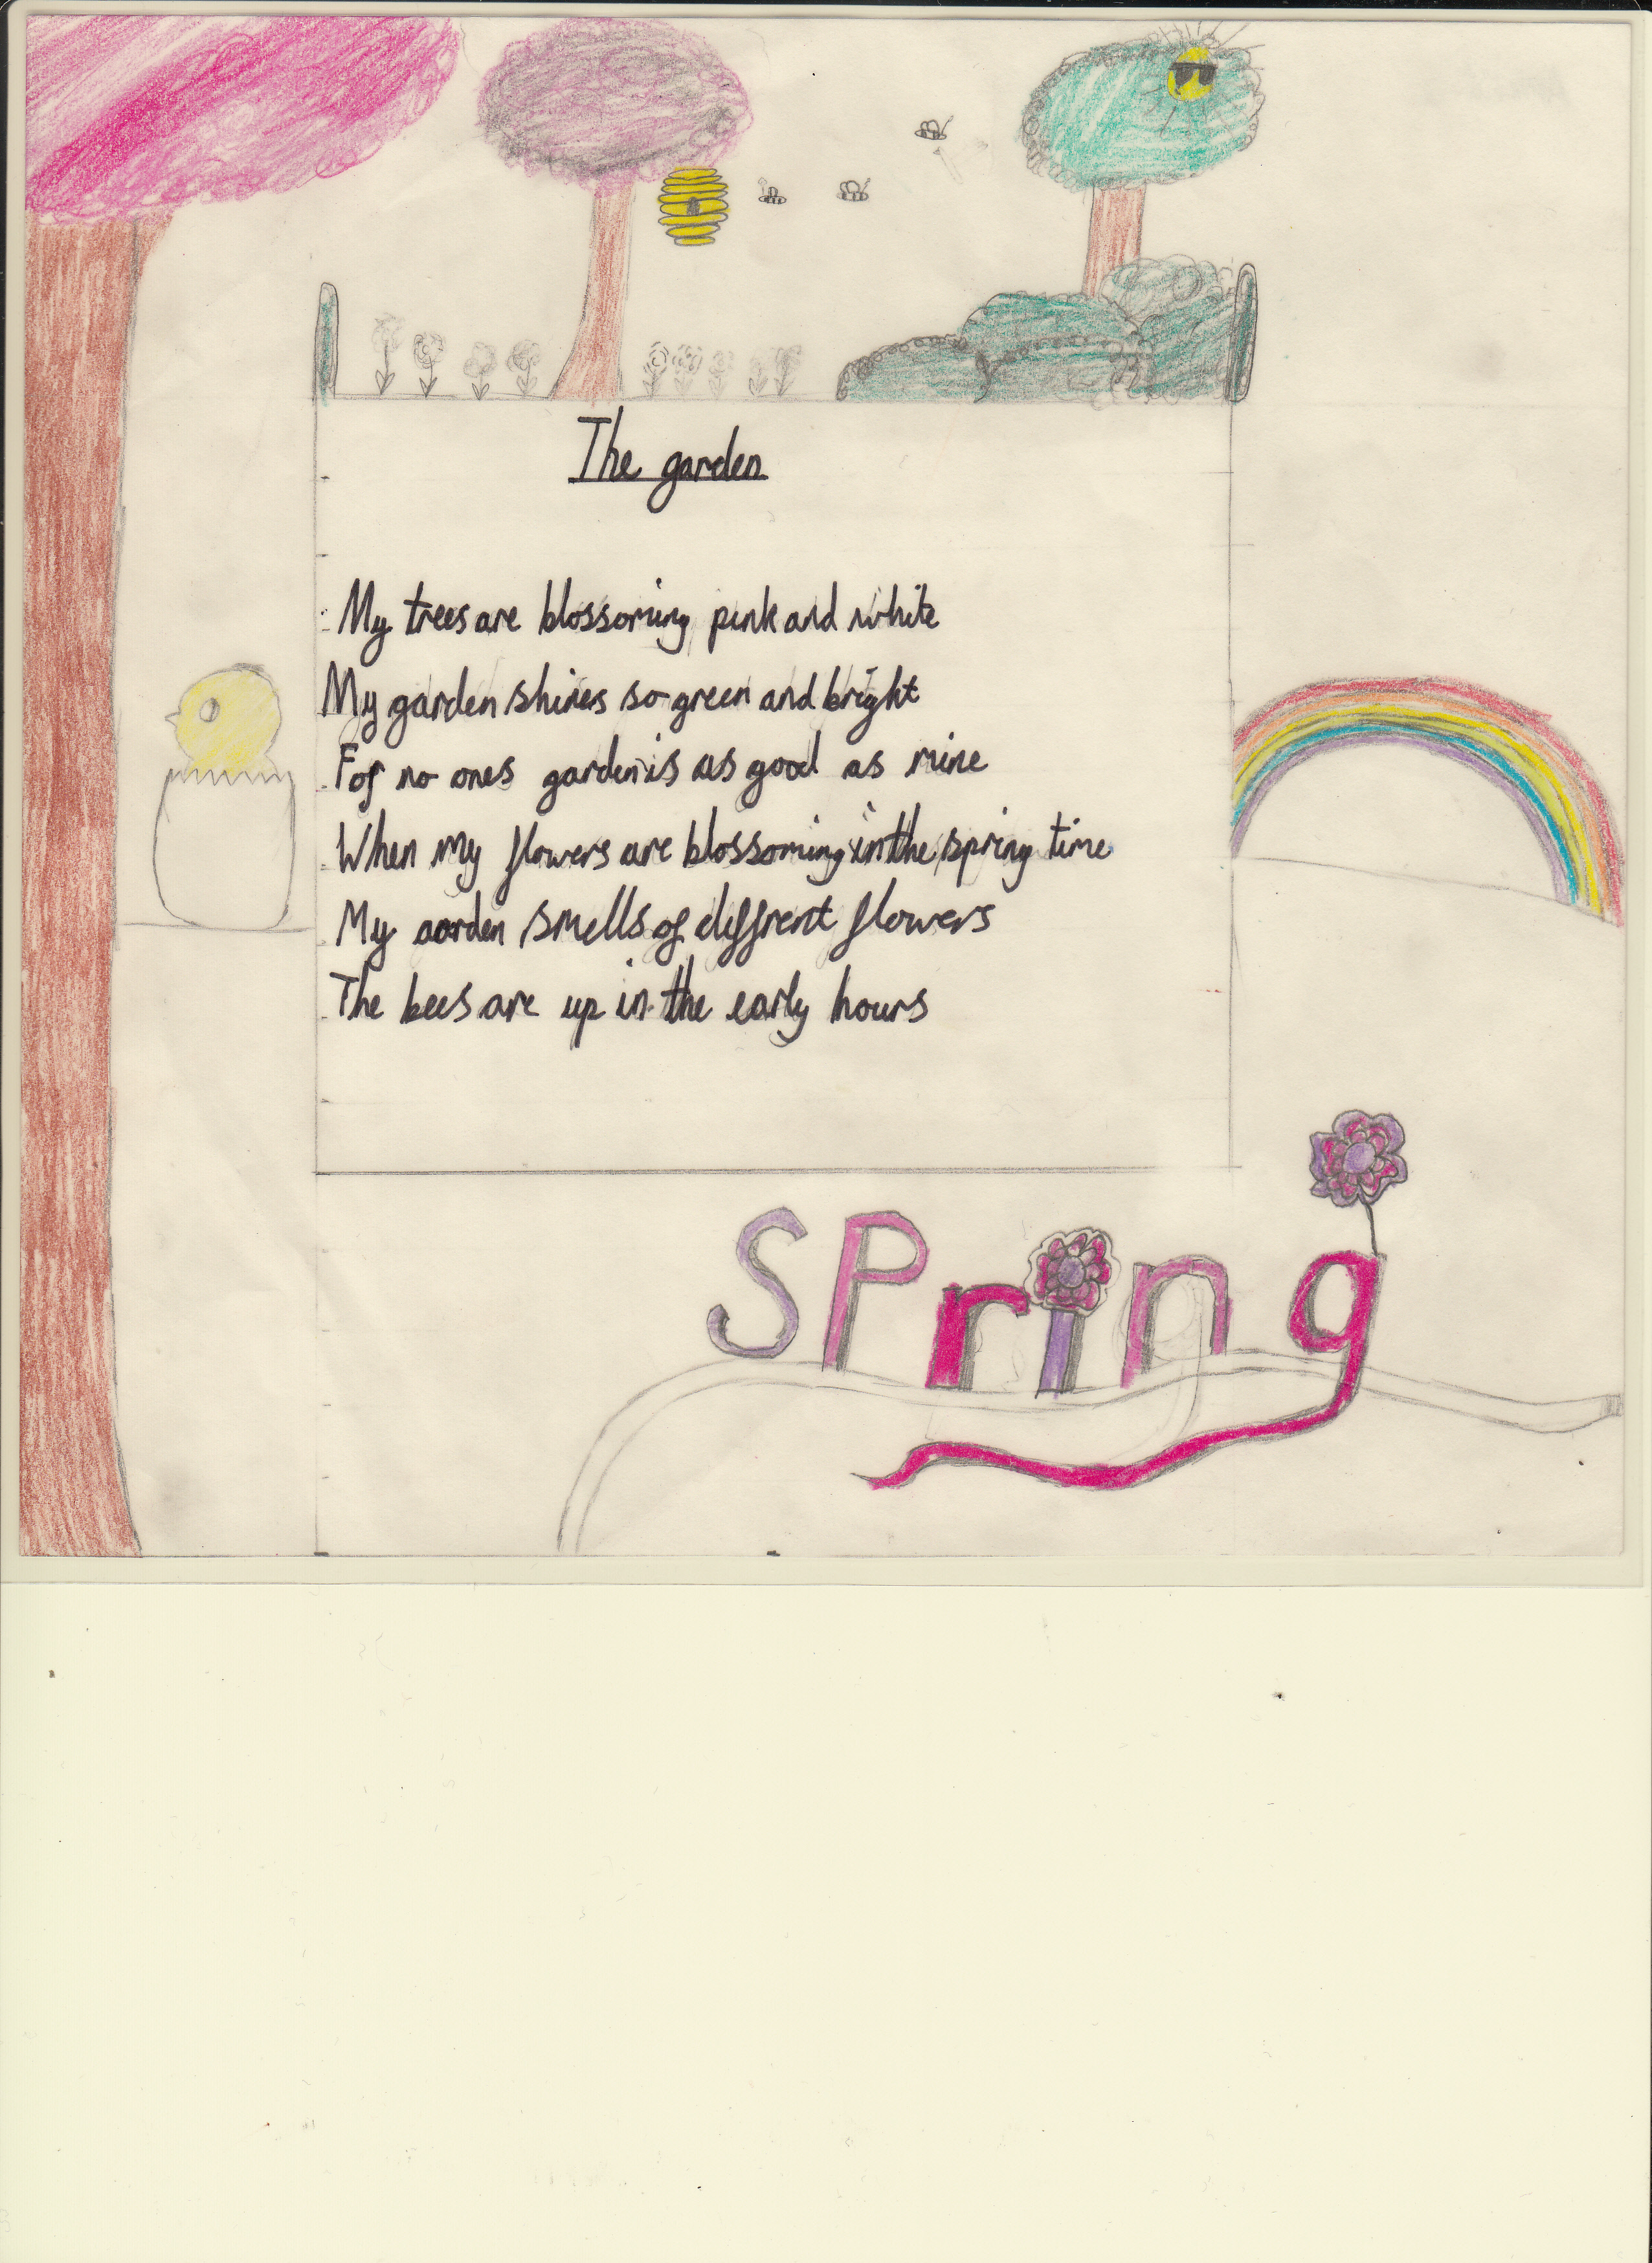 The garden
My trees are blossoming pink and white
My garden shines so green and bright
For no ones garden is as good as mine
When my flowers are blossoming in the spring time
My garden smells of diffrent flowers
The bees are up in the early hours
SPring